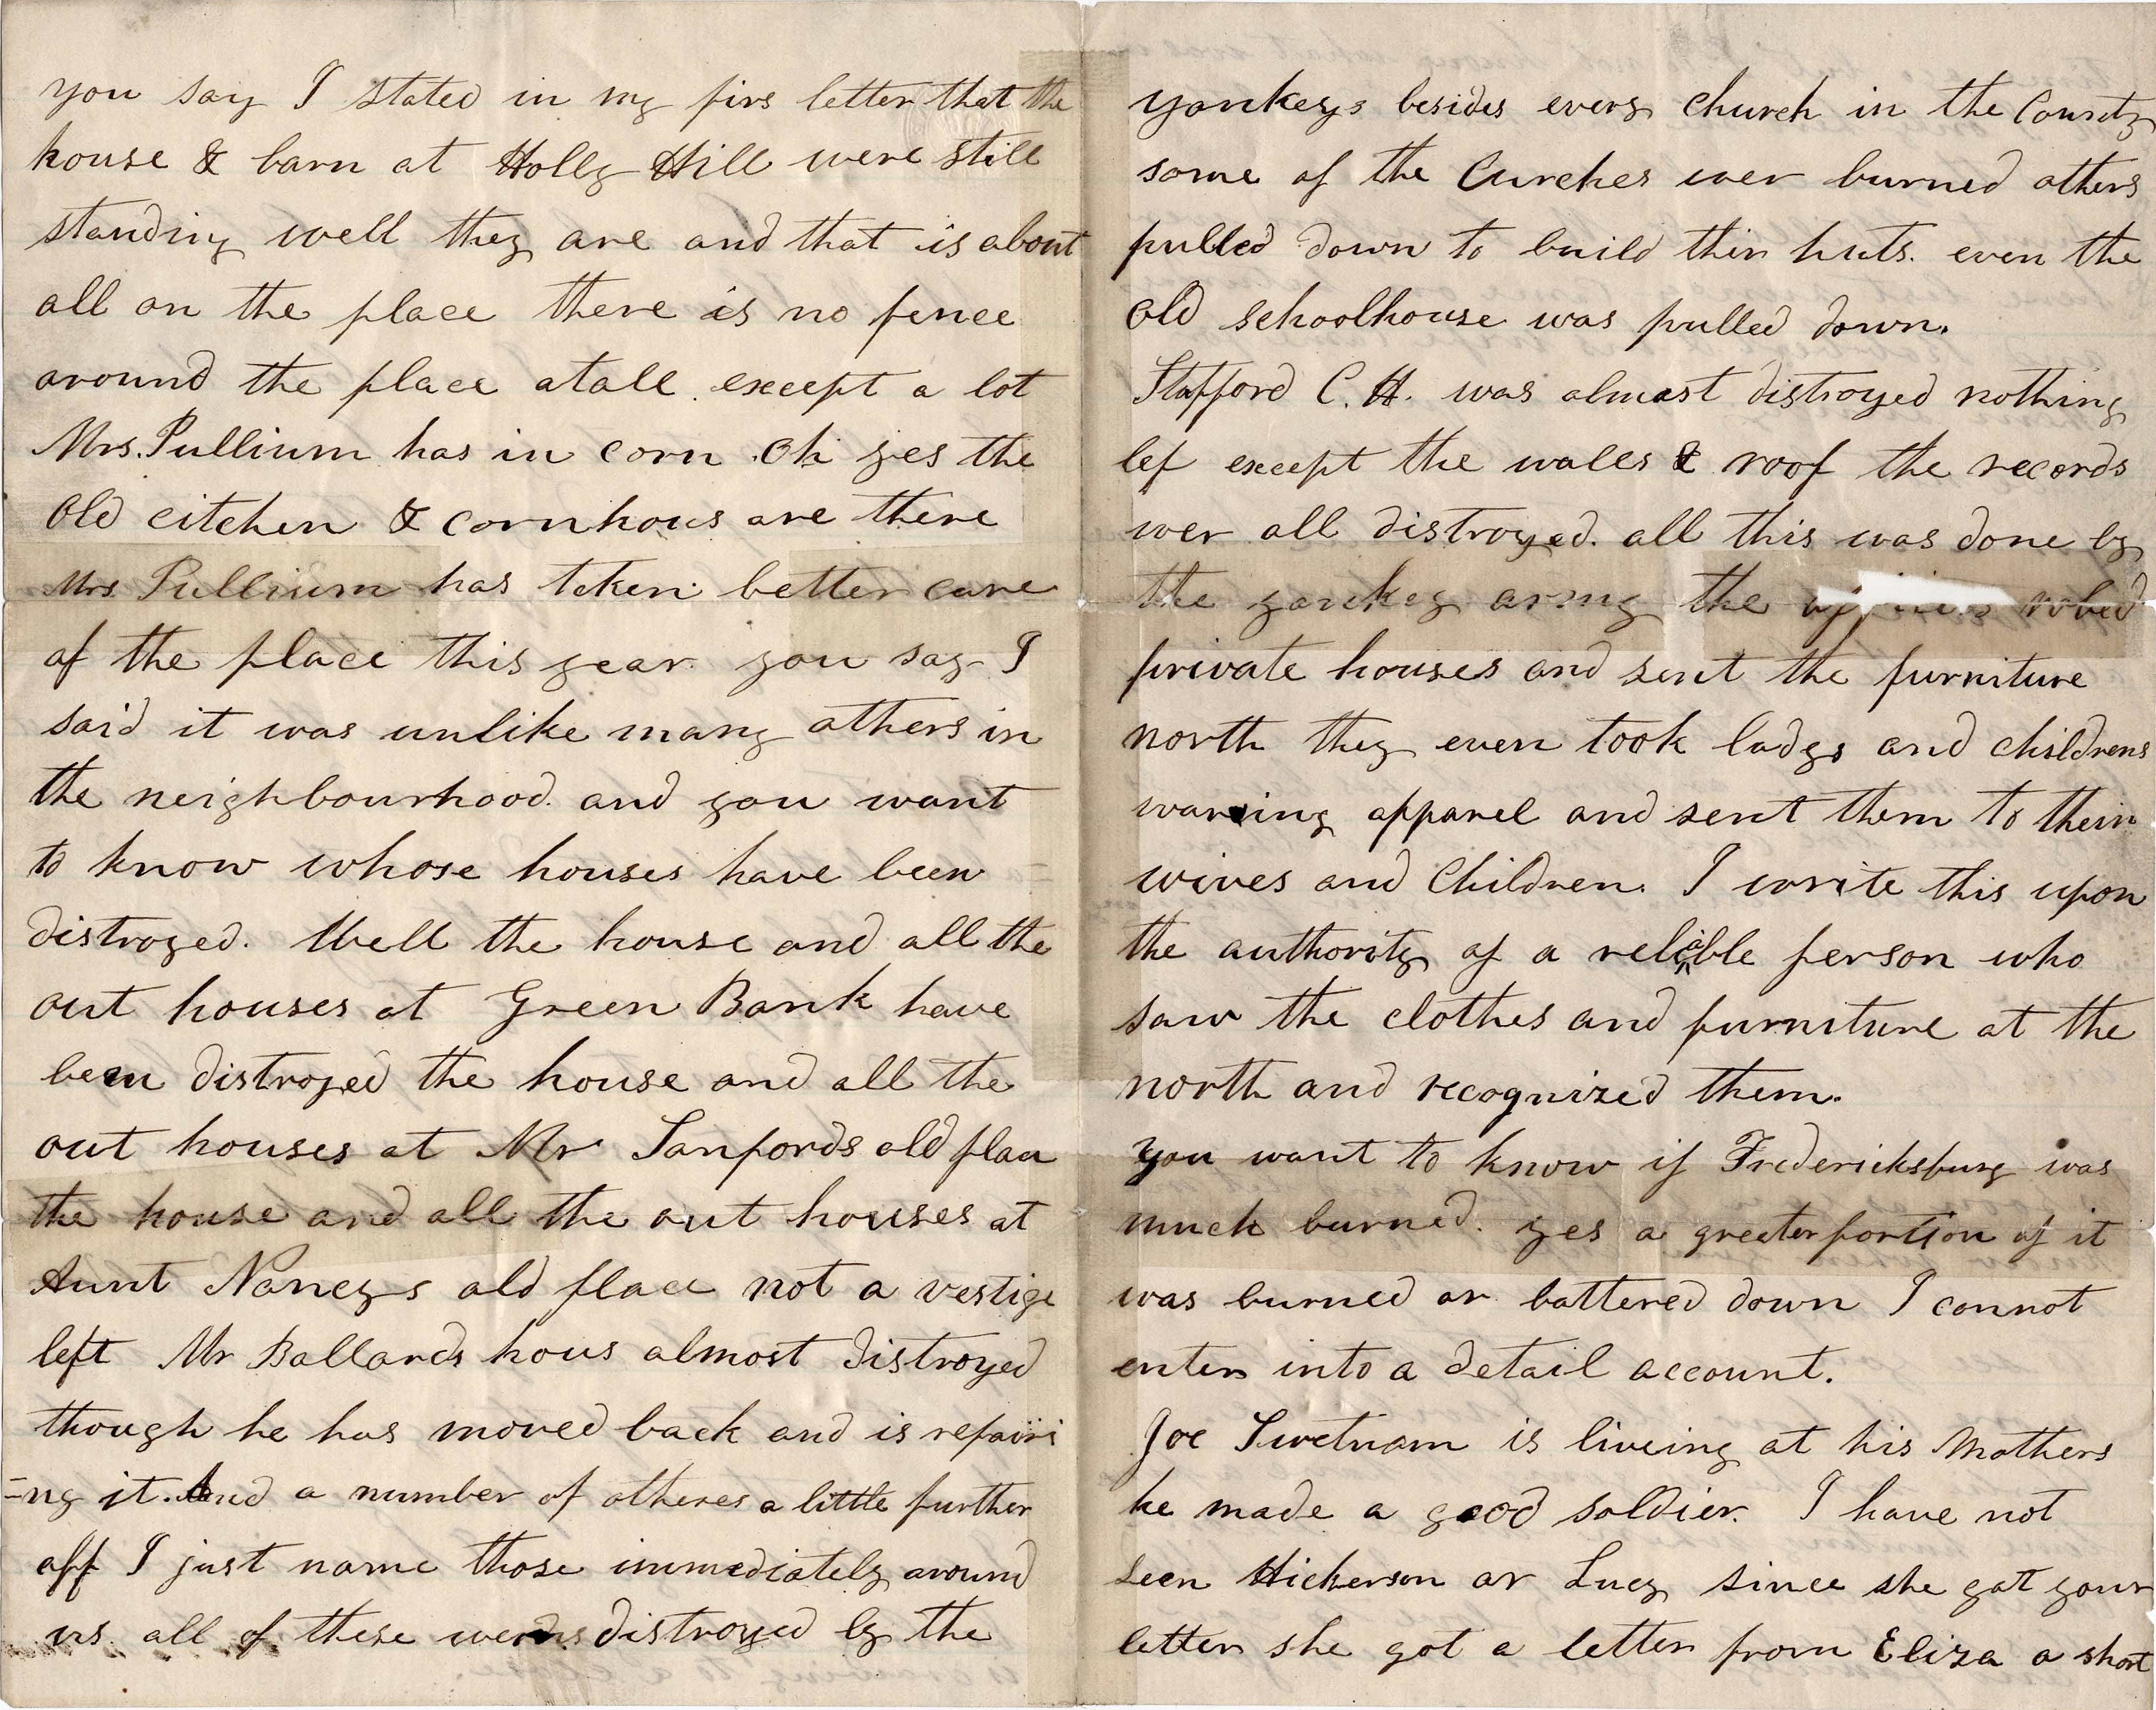 you say I stated in my firs letter that the
house & barn at Holly Hill were still
standing well they are and that is about
all on the place there is no fence
around the place atall except a lot
Mrs. Pullium has in corn Oh yes the
old citchen & cornhous are there
Mrs. Pullium has teken better care
of the place this year you say I
said it was unlike many others in
the neighbourhood. and you want
to know whose houses have been
distroyed. Well the house and all the
out houses at Green Bank have
been distroyed the house and all the
out houses at Mr Sanfords old place
the house and all the out houses at
Aunt Nancys old place not a vestige
left Mr Ballards hous almost distroyed
though he has moved back and is repairi
=ng it. And a number of otheres a little further
off I just name those immediately around
us. all of these distroyed by the
yankeys besides every church in the County
some of the Curches wer burned others
pulled down to build thir huts. even the
old schoolhouse was pulled down.
Stafford C. H. was almost distroyed nothing
lef except the walls & roof the records
wer all distroyed. all this was done by
the yankey army the robed
private houses and sent the furniture
north they even took ladys and childrens
waring apparel and sent them to their
wives and Children. I write this upon
the authority of a reliable person who
saw the clothes and furniture at the
north and recognized them.
you want to know if Fredericksburg was
much burned. yes a greater portion of it
was burned or battered down I cannot
enter into a detail account.
Joe Swetnam is liveing at his Mothers
he made a good soldier. I have not
seen Hickerson or Lucy since she got your
letter she got a letter from Eliza a short